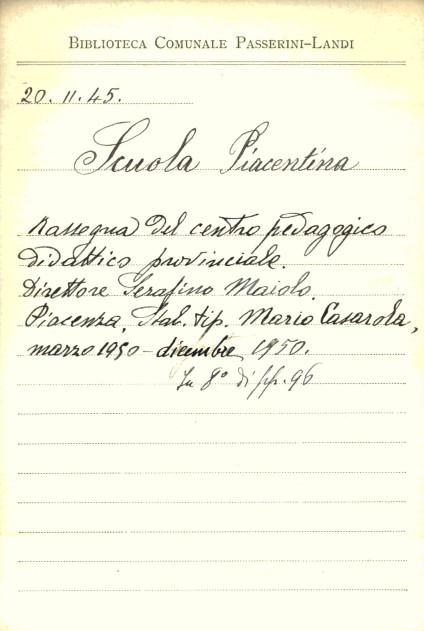 BIBLIOTECA COMUNALE PASSERINI-LANDI
20. 11. 45.
Scuola Piacentina
Rassegna del centro pedagogico
didattico provinciale.
Direttore Serafino Maiolo.
Piacenza, Stab. tip. Mario Casarola,
marzo 1950 - dicembre, 1950.
In 8° di pp. 96